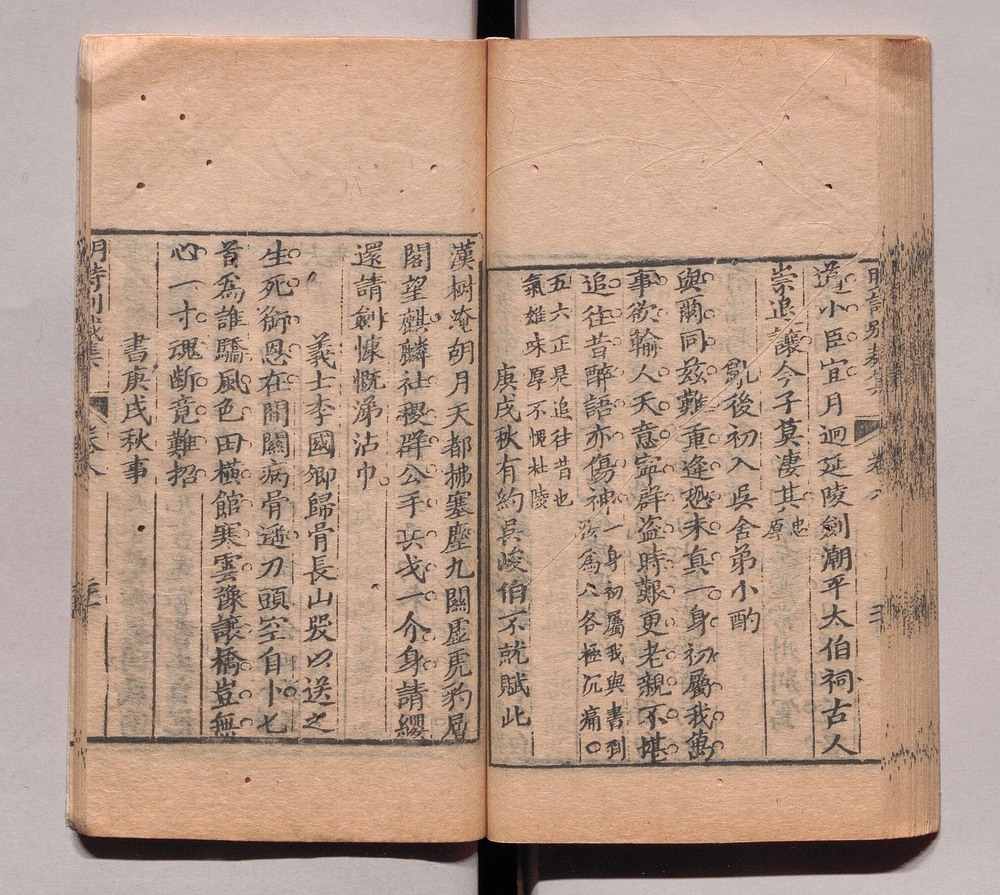 明詩別裁集 卷八
過小臣宜月迴延陵劍潮平太伯祠古人
崇退讓今子莫淒其
忠
厚
亂後初入吳舍弟小酌
與爾同茲難重逢恐未真一身初屬我萬
事欲輸人天意寧群盜時艱更老親不堪
追往昔醉語亦傷神
一身初屬我與書到
汝為人各極沉痛。
五六正是追往昔也
氣雄味厚不愧杜陵
庚戌秋有約吳峻伯不就賦此
漢樹淹胡月天都拂塞塵九關虛虎豹層
閣望麒麟社稷群公手兵戈一介身請纓
還請劍慷慨涕沾巾
義士李國卿歸骨長山哭以送之
生死銜恩在間關病骨遙刀頭空自卜匕
首為誰驕風色田橫館寒雲豫讓橋豈無
心一寸魂斷竟難招
書庚戌秋事
明詩別裁集 卷八